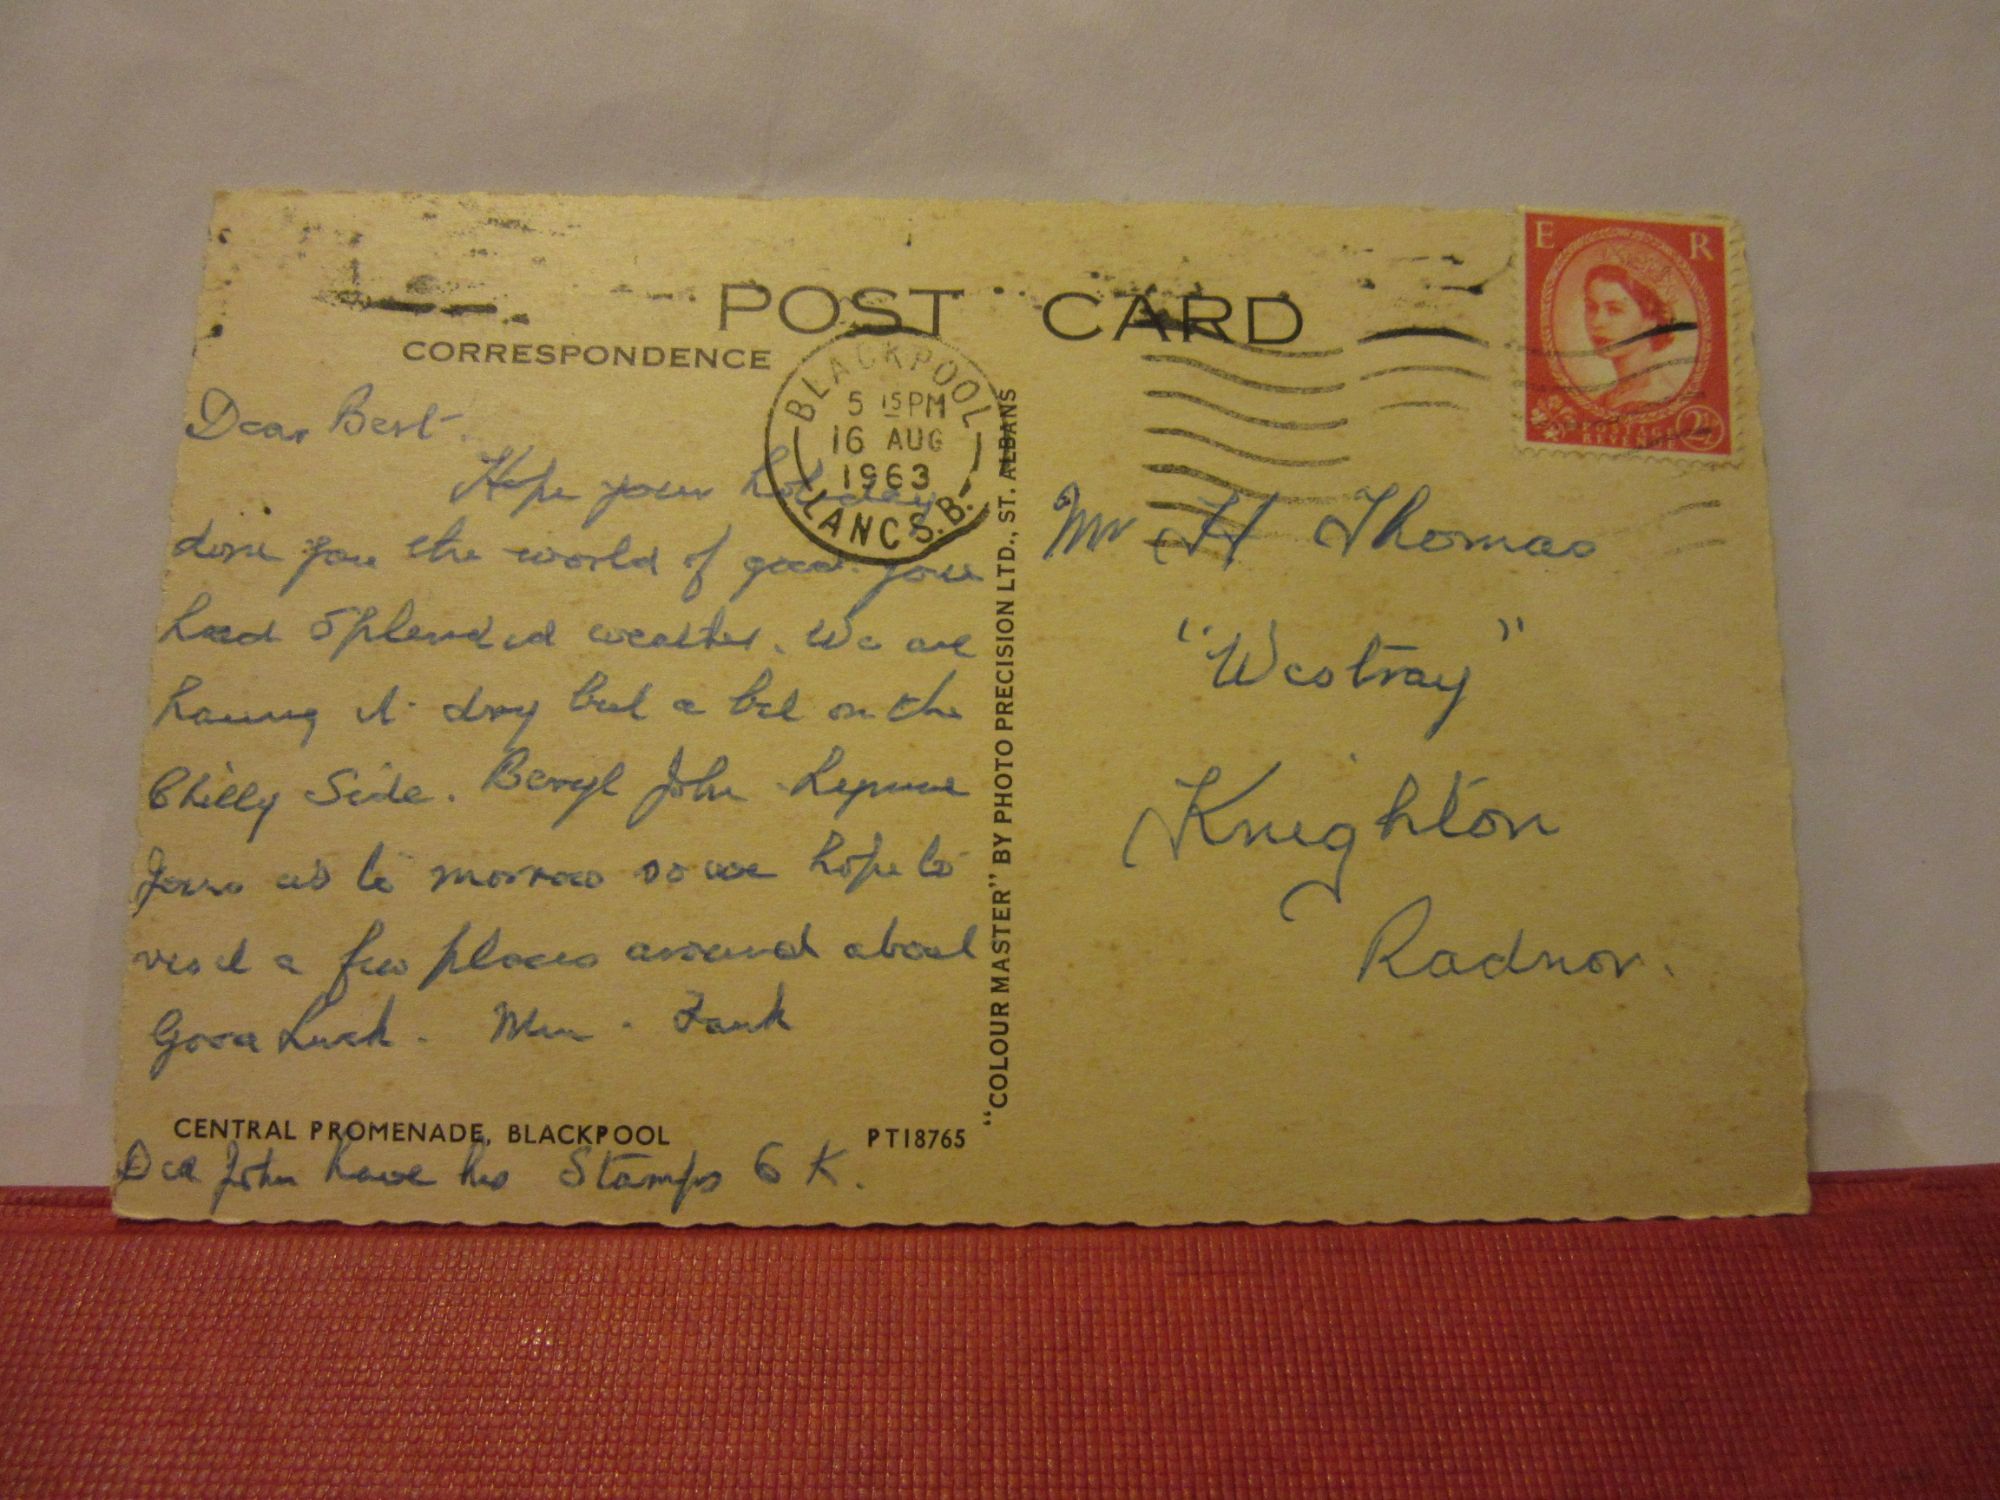 POST CARD
CORRESPONDENCE
BLACKPOOL
5 15 PM
16 AUG
1963
LANCS. B.
E R
POSTAGE
REVENUE
2½
Dear Bert.
Hope your holiday
done you the world of good. you
had Splendid weather. We are
having it dry but a bit on the
Chilly Side. Beryl John
Joins us to morrow so we hope to
visit a few places around about
Good Luck.
CENTRAL PROMENADE, BLACKPOOL PT18765
Did John have his Stamps O K.
"COLOUR MASTER" BY PHOTO PRECISION LTD., ST. ALBANS
Mr H Thomas
"Westray"
Knighton
Radnor.